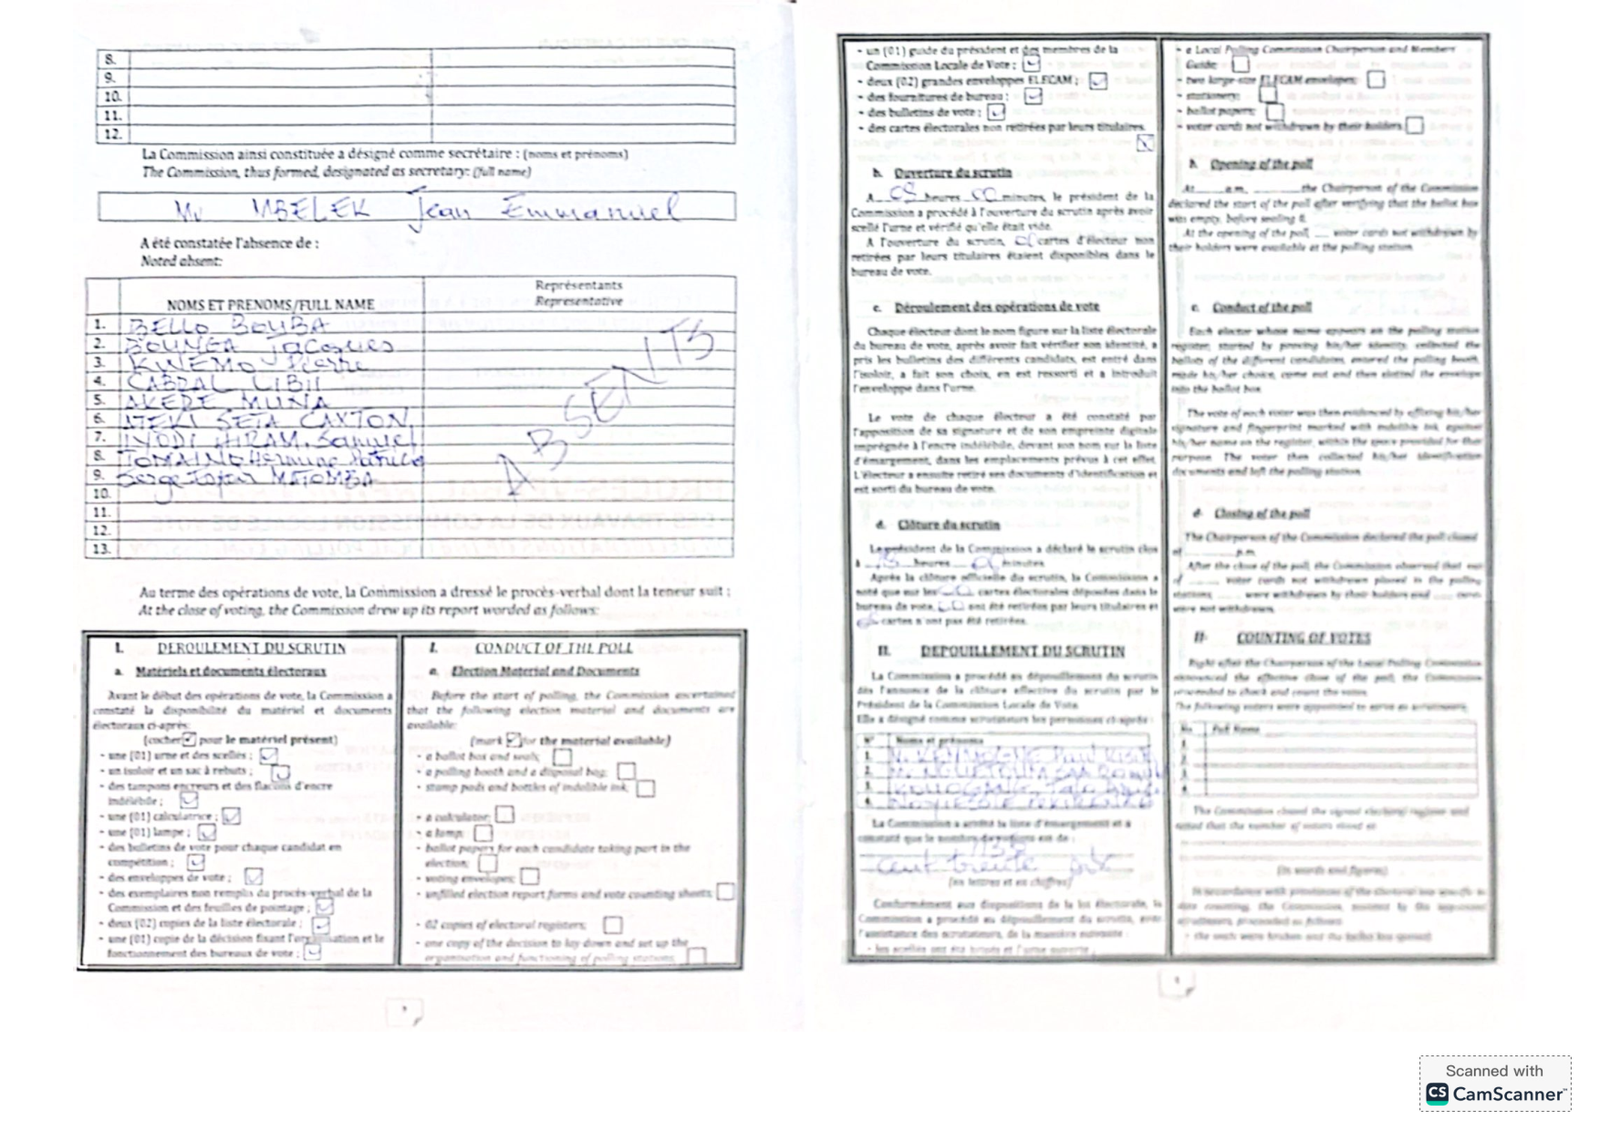 8.
9.
10.
11.
12.
La Commission ainsi constituée a désigné comme secrétaire : (noms et prénoms)
The Commission, thus formed, designated as secretary: (full name)
Mr MBELEK Jean Emmanuel
A été constatée l'absence de :
Noted absent:
NOMS ET PRENOMS/FULL NAME
Représentants
Representative
1. BELLO BOUBA
2. BOUNGA Jacques
3. KWEMO Pierre
4. CABRAL LIBII
5. AKERE MUNA
6. ATEKI SETA CAXTON
7. IYODI HIRAM Samuel
8. TOMAINO Hermine Patricia
9. Serge Espoir MATOMBA
10.
11.
12.
13.
ABSENTS
Au terme des opérations de vote, la Commission a dressé le procès-verbal dont la teneur suit :
At the close of voting, the Commission drew up its report worded as follows:
I. DEROULEMENT DU SCRUTIN
a. Matériels et documents électoraux
Avant le début des opérations de vote, la Commission a
constaté la disponibilité du matériel et documents
électoraux ci-après:
(cocher pour le matériel présent)
- une (01) urne et des scellés ;
- un isoloir et un sac à rebuts ;
- des tampons encreurs et des flacons d'encre
indélébile ;
- une (01) calculatrice ;
- une (01) lampe ;
- des bulletins de vote pour chaque candidat en
compétition ;
- des enveloppes de vote ;
- des exemplaires non remplis du procès-verbal de la
Commission et des feuilles de pointage ;
- deux (02) copies de la liste électorale ;
- une (01) copie de la décision fixant l'organisation et le
fonctionnement des bureaux de vote ;
I. CONDUCT OF THE POLL
a. Election Material and Documents
Before the start of polling, the Commission ascertained
that the following election material and documents are
available:
(mark for the material available)
- a ballot box and seals;
- a polling booth and a disposal bag;
- stamp pads and bottles of indelible ink;
- a calculator;
- a lamp;
- ballot papers for each candidate taking part in the
election;
- voting envelopes;
- unfilled election report forms and vote counting sheets;
- 02 copies of electoral registers;
- one copy of the decision to lay down and set up the
organisation and functioning of polling stations;
- un (01) guide du président et des membres de la
Commission Locale de Vote ;
- deux (02) grandes enveloppes ELECAM ;
- des fournitures de bureau ;
- des bulletins de vote ;
- des cartes électorales non retirées par leurs titulaires.
b. Ouverture du scrutin
A 08 heures 00 minutes, le président de la
Commission a procédé à l'ouverture du scrutin après avoir
scellé l'urne et vérifié qu'elle était vide.
A l'ouverture du scrutin, cartes d'électeur non
retirées par leurs titulaires étaient disponibles dans le
bureau de vote.
c. Déroulement des opérations de vote
Chaque électeur dont le nom figure sur la liste électorale
du bureau de vote, après avoir fait vérifier son identité, a
pris les bulletins des différents candidats, est entré dans
l'isoloir, a fait son choix, en est ressorti et a introduit
l'enveloppe dans l'urne.
Le vote de chaque électeur a été constaté par
l'apposition de sa signature et de son empreinte digitale
imprégnée à l'encre indélébile, devant son nom sur la liste
d'émargement, dans les emplacements prévus à cet effet.
L'électeur a ensuite retiré ses documents d'identification et
est sorti du bureau de vote.
d. Clôture du scrutin
Le président de la Commission a déclaré le scrutin clos
à heures minutes.
Après la clôture officielle du scrutin, la Commission a
noté que sur les cartes électorales déposées dans le
bureau de vote, ont été retirées par leurs titulaires et
cartes n'ont pas été retirées.
II. DEPOUILLEMENT DU SCRUTIN
La Commission a procédé au dépouillement du scrutin
dès l'annonce de la clôture effective du scrutin par le
Président de la Commission Locale de Vote.
Elle a désigné comme scrutateurs les personnes ci-après :
N° Noms et prénoms
1.
2.
3.
4.
La Commission a arrêté la liste d'émargement et a
constaté que le nombre de votants est de :
136
cent trente six
(en lettres et en chiffres)
Conformément aux dispositions de la loi électorale, la
Commission a procédé au dépouillement du scrutin, avec
l'assistance des scrutateurs, de la manière suivante :
- les scellés ont été brisés et l'urne ouverte ;
- a Local Polling Commission Chairperson and Members
Guide;
- two large-size ELECAM envelopes;
- stationery;
- ballot papers;
- voter cards not withdrawn by their holders
b. Opening of the poll
At a.m, the Chairperson of the Commission
declared the start of the poll after verifying that the ballot box
was empty, before sealing it.
At the opening of the poll, voter cards not withdrawn by
their holders were available at the polling station.
c. Conduct of the poll
Each elector whose name appears on the polling station
register, started by proving his/her identity, collected the
ballots of the different candidates, entered the polling booth,
made his/her choice, came out and then slotted the envelope
into the ballot box.
The vote of each voter was then evidenced by affixing his/her
signature and fingerprint marked with indelible ink against
his/her name on the register, within the space provided for that
purpose. The voter then collected his/her identification
documents and left the polling station.
d- Closing of the poll
The Chairperson of the Commission declared the poll closed
at p.m.
After the close of the poll, the Commission observed that out
of voter cards not withdrawn placed in the polling
stations, were withdrawn by their holders and
were not withdrawn.
II- COUNTING OF VOTES
Right after the Chairperson of the Local Polling Commission
announced the effective close of the poll, the Commission
proceeded to check and count the votes.
The following voters were appointed to serve as scrutineers.
No Full Name
1.
2.
3.
4.
The Commission closed the signed electoral register and
noted that the number of voters stood at:
(in words and figures)
Scanned with
CS CamScanner